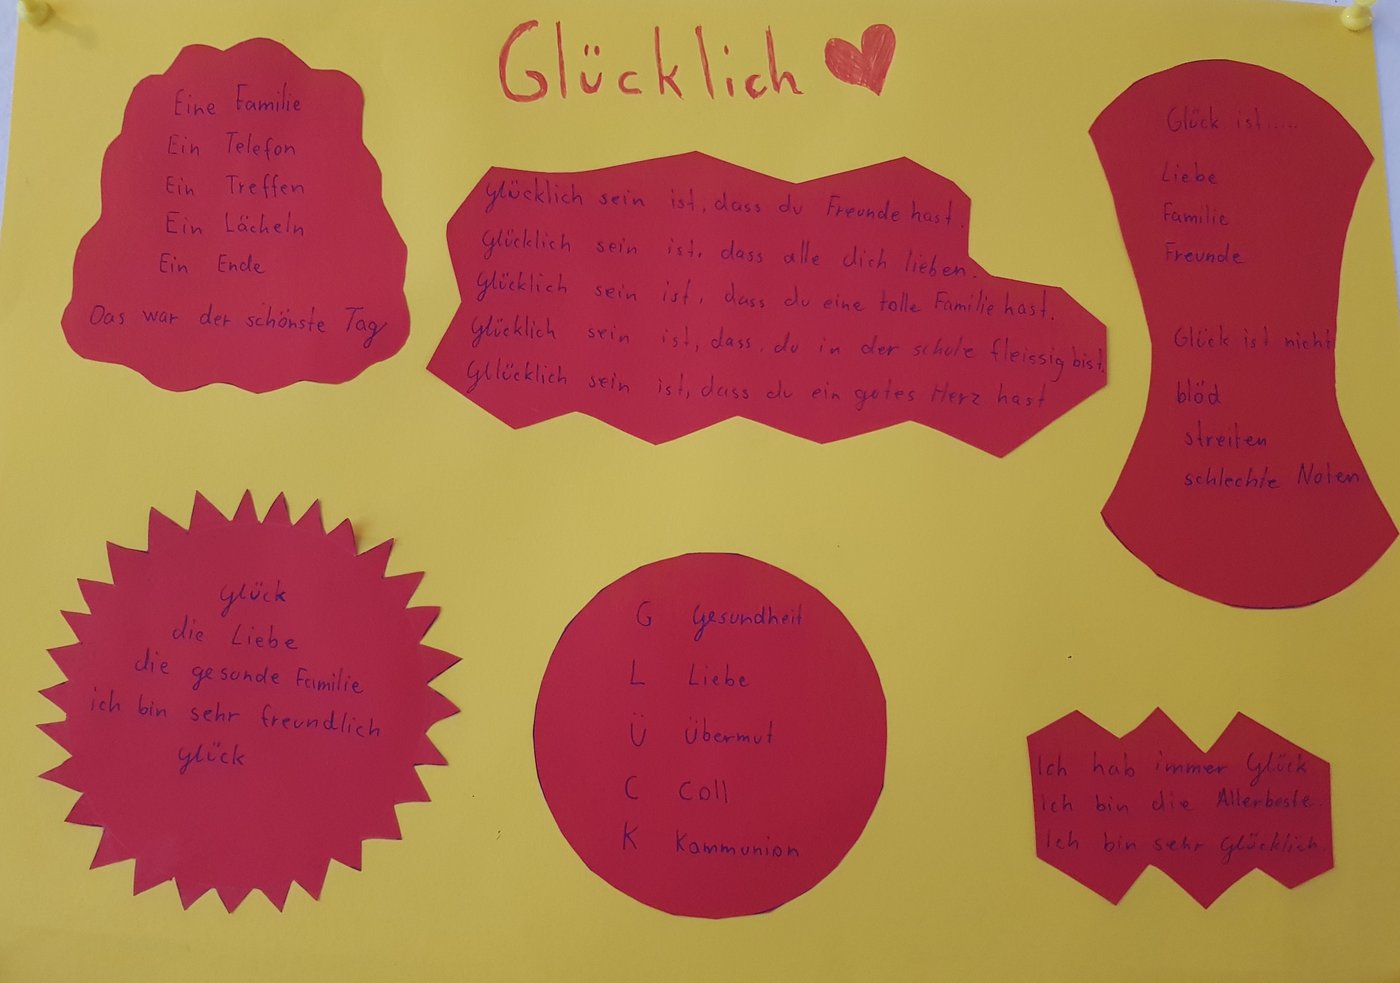 Glücklich
Eine Familie
Ein Telefon
Ein Treffen
Ein Lächeln
Ein Ende
Das war der schönste Tag
Glücklich sein ist, dass du Freunde hast.
Glücklich sein ist, dass alle dich lieben.
Glücklich sein ist, dass du eine tolle Familie hast.
Glücklich sein ist, dass du in der schule fleissig bist.
Gllücklich sein ist, dass du ein gutes Herz hast
Glück ist.....
Liebe
Familie
Freunde
Glück ist nicht
blöd
streiten
schlechte Noten
Glück
die Liebe
die gesunde Familie
ich bin sehr freundlich
Glück
G Gesundheit
L Liebe
Ü Übermut
C Coll
K Kommunion
Ich hab immer Glück
Ich bin die Allerbeste.
Ich bin sehr Glücklich.